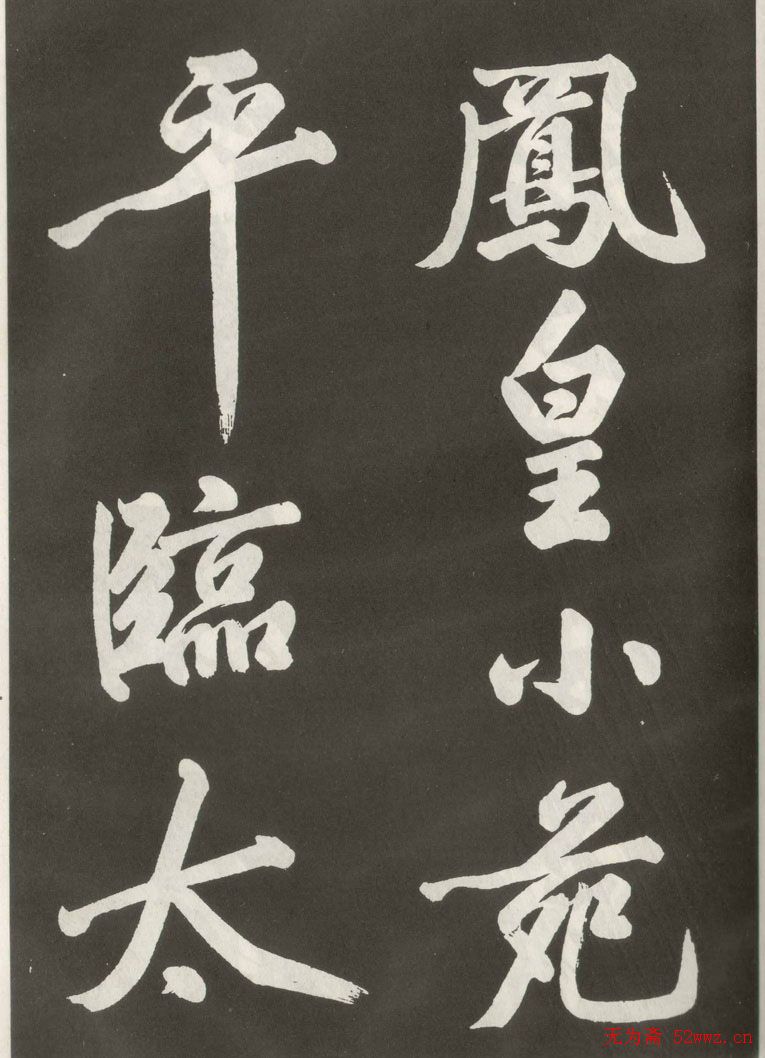 鳳皇小苑
平臨太
无为斋 52wwz.cn